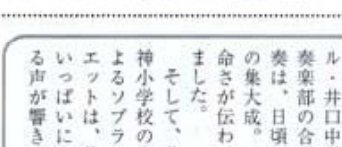 ル・井口中
奏楽部の合
奏は、日頃
の集大成。
命さが伝わ
ました。
そして、
神小学校の
よるソプラ
エットは、
いっぱいに
る声が響き